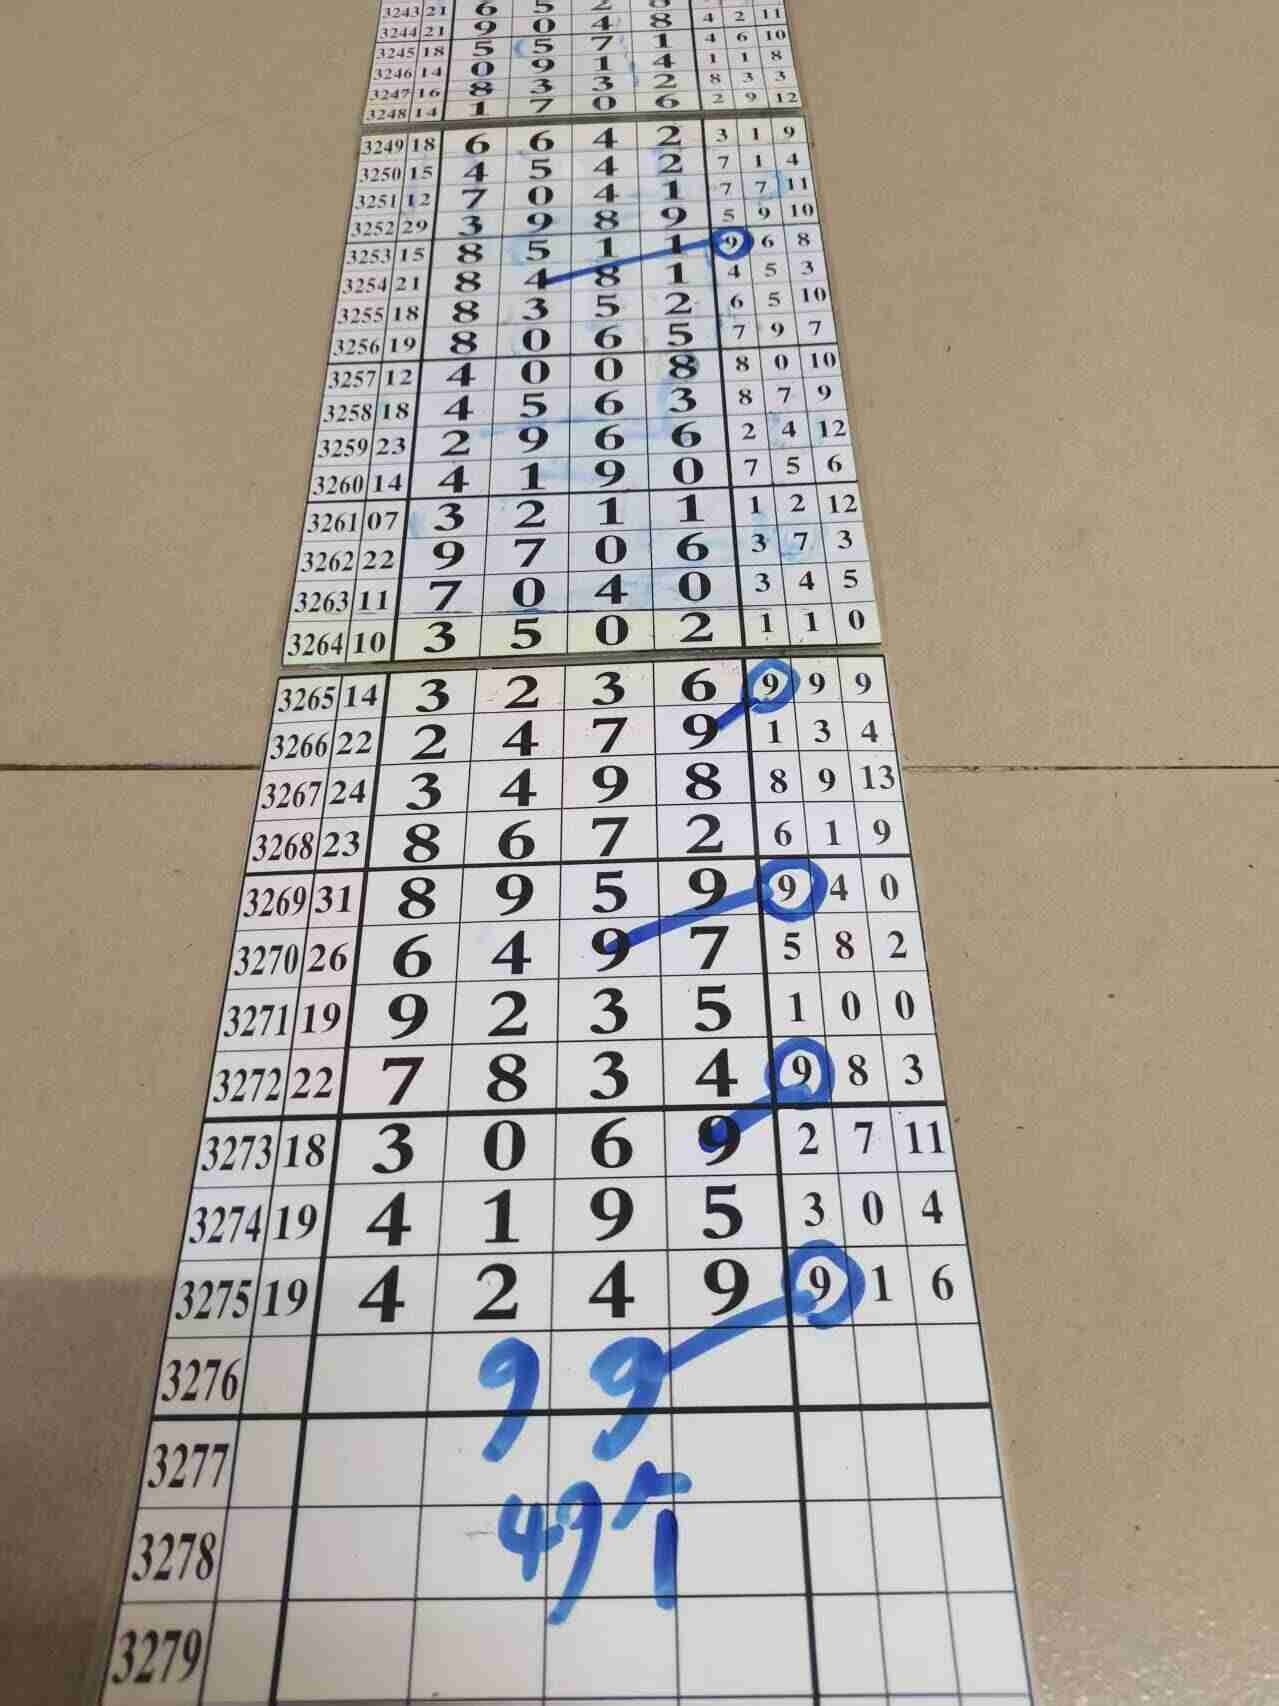 3243 21 6 5 2 8
3244 21 9 0 4 8 4 2 11
3245 18 5 5 7 1 4 6 10
3246 14 0 9 1 4 1 1 8
3247 16 8 3 3 2 8 3 3
3248 14 1 7 0 6 2 9 12
3249 18 6 6 4 2 3 1 9
3250 15 4 5 4 2 7 1 4
3251 12 7 0 4 1 7 7 11
3252 29 3 9 8 9 5 9 10
3253 15 8 5 1 1 9 6 8
3254 21 8 4 8 1 4 5 3
3255 18 8 3 5 2 6 5 10
3256 19 8 0 6 5 7 9 7
3257 12 4 0 0 8 8 0 10
3258 18 4 5 6 3 8 7 9
3259 23 2 9 6 6 2 4 12
3260 14 4 1 9 0 7 5 6
3261 07 3 2 1 1 1 2 12
3262 22 9 7 0 6 3 7 3
3263 11 7 0 4 0 3 4 5
3264 10 3 5 0 2 1 1 0
3265 14 3 2 3 6 9 9 9
3266 22 2 4 7 9 1 3 4
3267 24 3 4 9 8 8 9 13
3268 23 8 6 7 2 6 1 9
3269 31 8 9 5 9 9 4 0
3270 26 6 4 9 7 5 8 2
3271 19 9 2 3 5 1 0 0
3272 22 7 8 3 4 9 8 3
3273 18 3 0 6 9 2 7 11
3274 19 4 1 9 5 3 0 4
3275 19 4 2 4 9 9 1 6
3276 9 9
3277
3278 49
3279